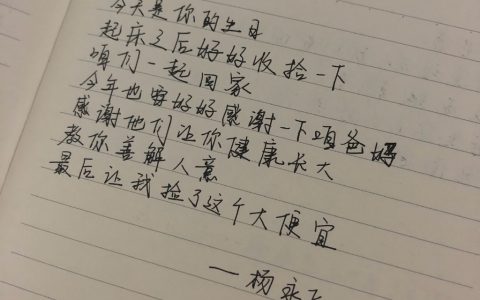 今天是你的生日
起床之后好好收拾一下
咱们一起回家
今年也要好好感谢一下咱爸妈
感谢他们让你健康长大
教你善解人意
最后让我捡了这个大便宜
——杨永